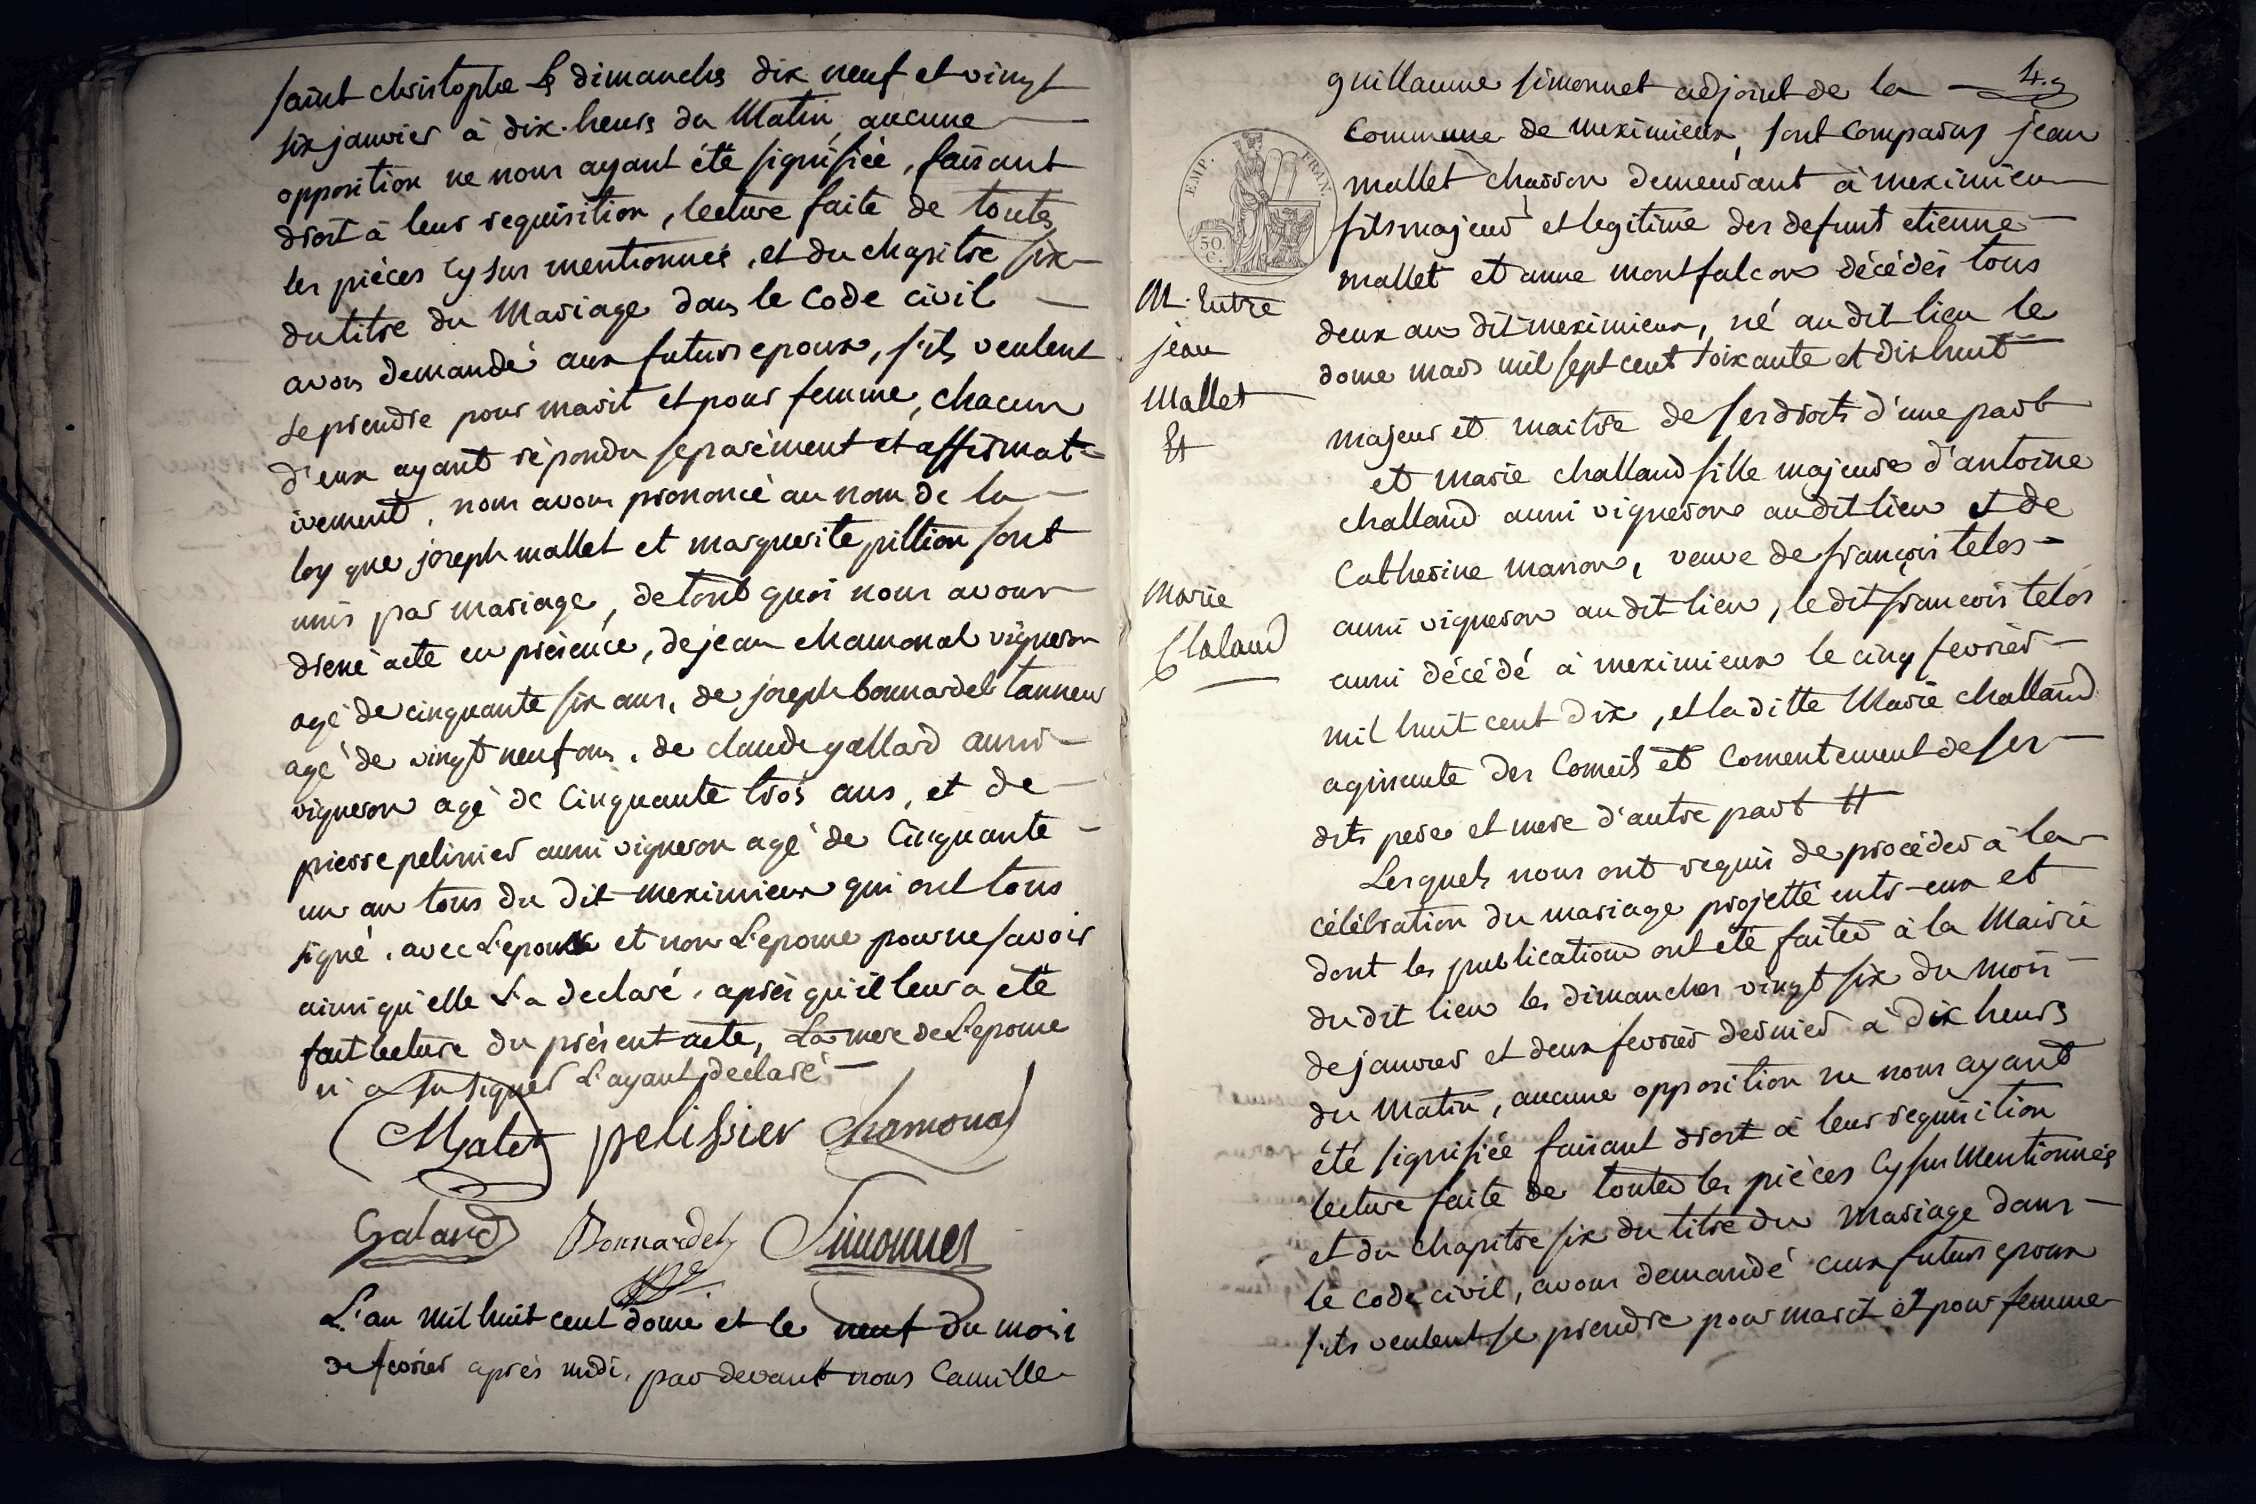 saint christophe Le dimanche dix neuf et vingt
six janvier à dix heurs du Matin, aucune
opposition ne nous ayant été signifiée, faisant
droit à leur requisition, lecture faite de toutes
les pièces cy sus mentionnée, et du chapitre six
du titre du Mariage dans le Code civil
avons demandé aux futurs epoux, s'ils veulent
se prendre pour marit et pour femme, chacun
d'eux ayant répondu separément et affirmat-
ivement, nous avons prononcé au nom de la
loy que joseph mallet et marguerite pillion sont
unis par mariage, de tout quoi nous avons
dressé acte en présence, de jean chamonal vigneron
agé de cinquante six ans, de joseph bonnardel tanneur
agé de vingt neuf ans, de claude gallard aussi
vigneron agé de Cinquante trois ans, et de
pierre pelissier aussi vigneron agé de Cinquante
un an tous du dit meximieux qui ont tous
signé, avec L'epoux et non L'epouse pour ne savoir
ainsi qu'elle L'a declaré, après qu'il leur a été
fait lecture du présent acte, La mere de L'epouse
n'a su signer L'ayant declaré
Malet pelissier Chamonal
Galard Bonnardel Simonnet
L'an mil huit cent douze et le neuf du mois
de fevrier après midi, par devant nous Camille
4.9
guillaume simonnet adjoint de la
Commune de meximieux, sont comparus jean
mallet charron demeurant à meximieu
fils majeur et legitime des defunt etienne
mallet et anne montfalcon décédés tous
deux au dit meximieux, né au dit lieu le
douze mars mil sept cent soixante et dix huit
majeur et maitre de ses droits d'une part
et marie challand fille majeure d'antoine
challand aussi vigneron audit lieu et de
Catherine marion, veuve de françois telos
aussi vigneron au dit lieu, le dit françois telos
aussi décédé à meximieux le cinq fevrier
mil huit cent dix, et la ditte Marie challand
agissante des Conseils et Consentement de ses
dits pere et mere d'autre part
Lesquels nous ont requis de procéder à la
célébration du mariage projetté entr-eux et
dont les publications ont été faites à la Mairie
du dit lieu les dimanches vingt six du mois
de janvier et deux fevrier dernier à dix heurs
du Matin, aucune opposition ne nous ayant
été signifiée faisant droit à leur requisition
lecture faite de toutes les pièces cy sus Mentionnées
et du chapitre six du titre du Mariage dans
le code civil, avons demandé aux futurs epoux
s'ils veulent se prendre pour marit et pour femme
EMP. FRAN.
50.
C.
M. Entre
jean
Mallet
Et
Marie
Chaland